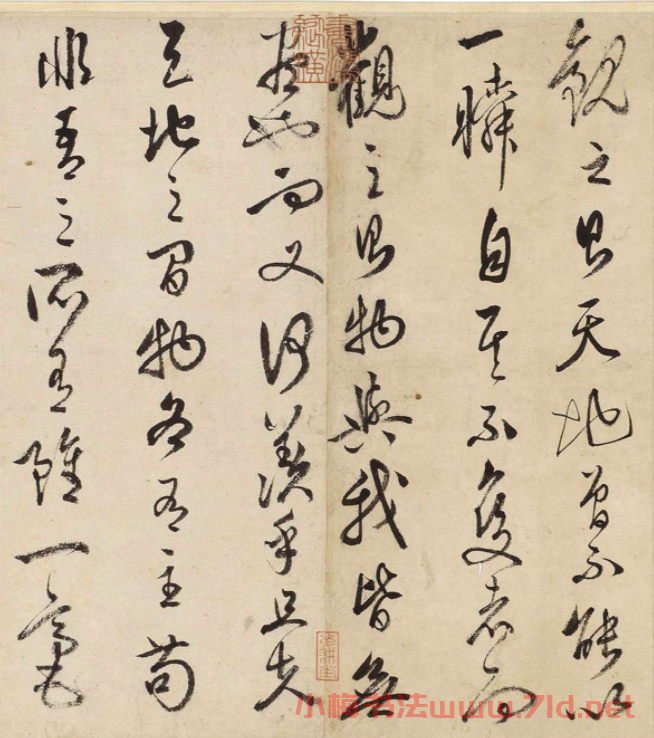 觀之則天地曾不能以
一瞬自其不變者而
觀之則物與我皆無
盡也而又何羨乎且夫
天地之間物各有主苟
非吾之所有雖一毫
小梅书法www.7ld.net